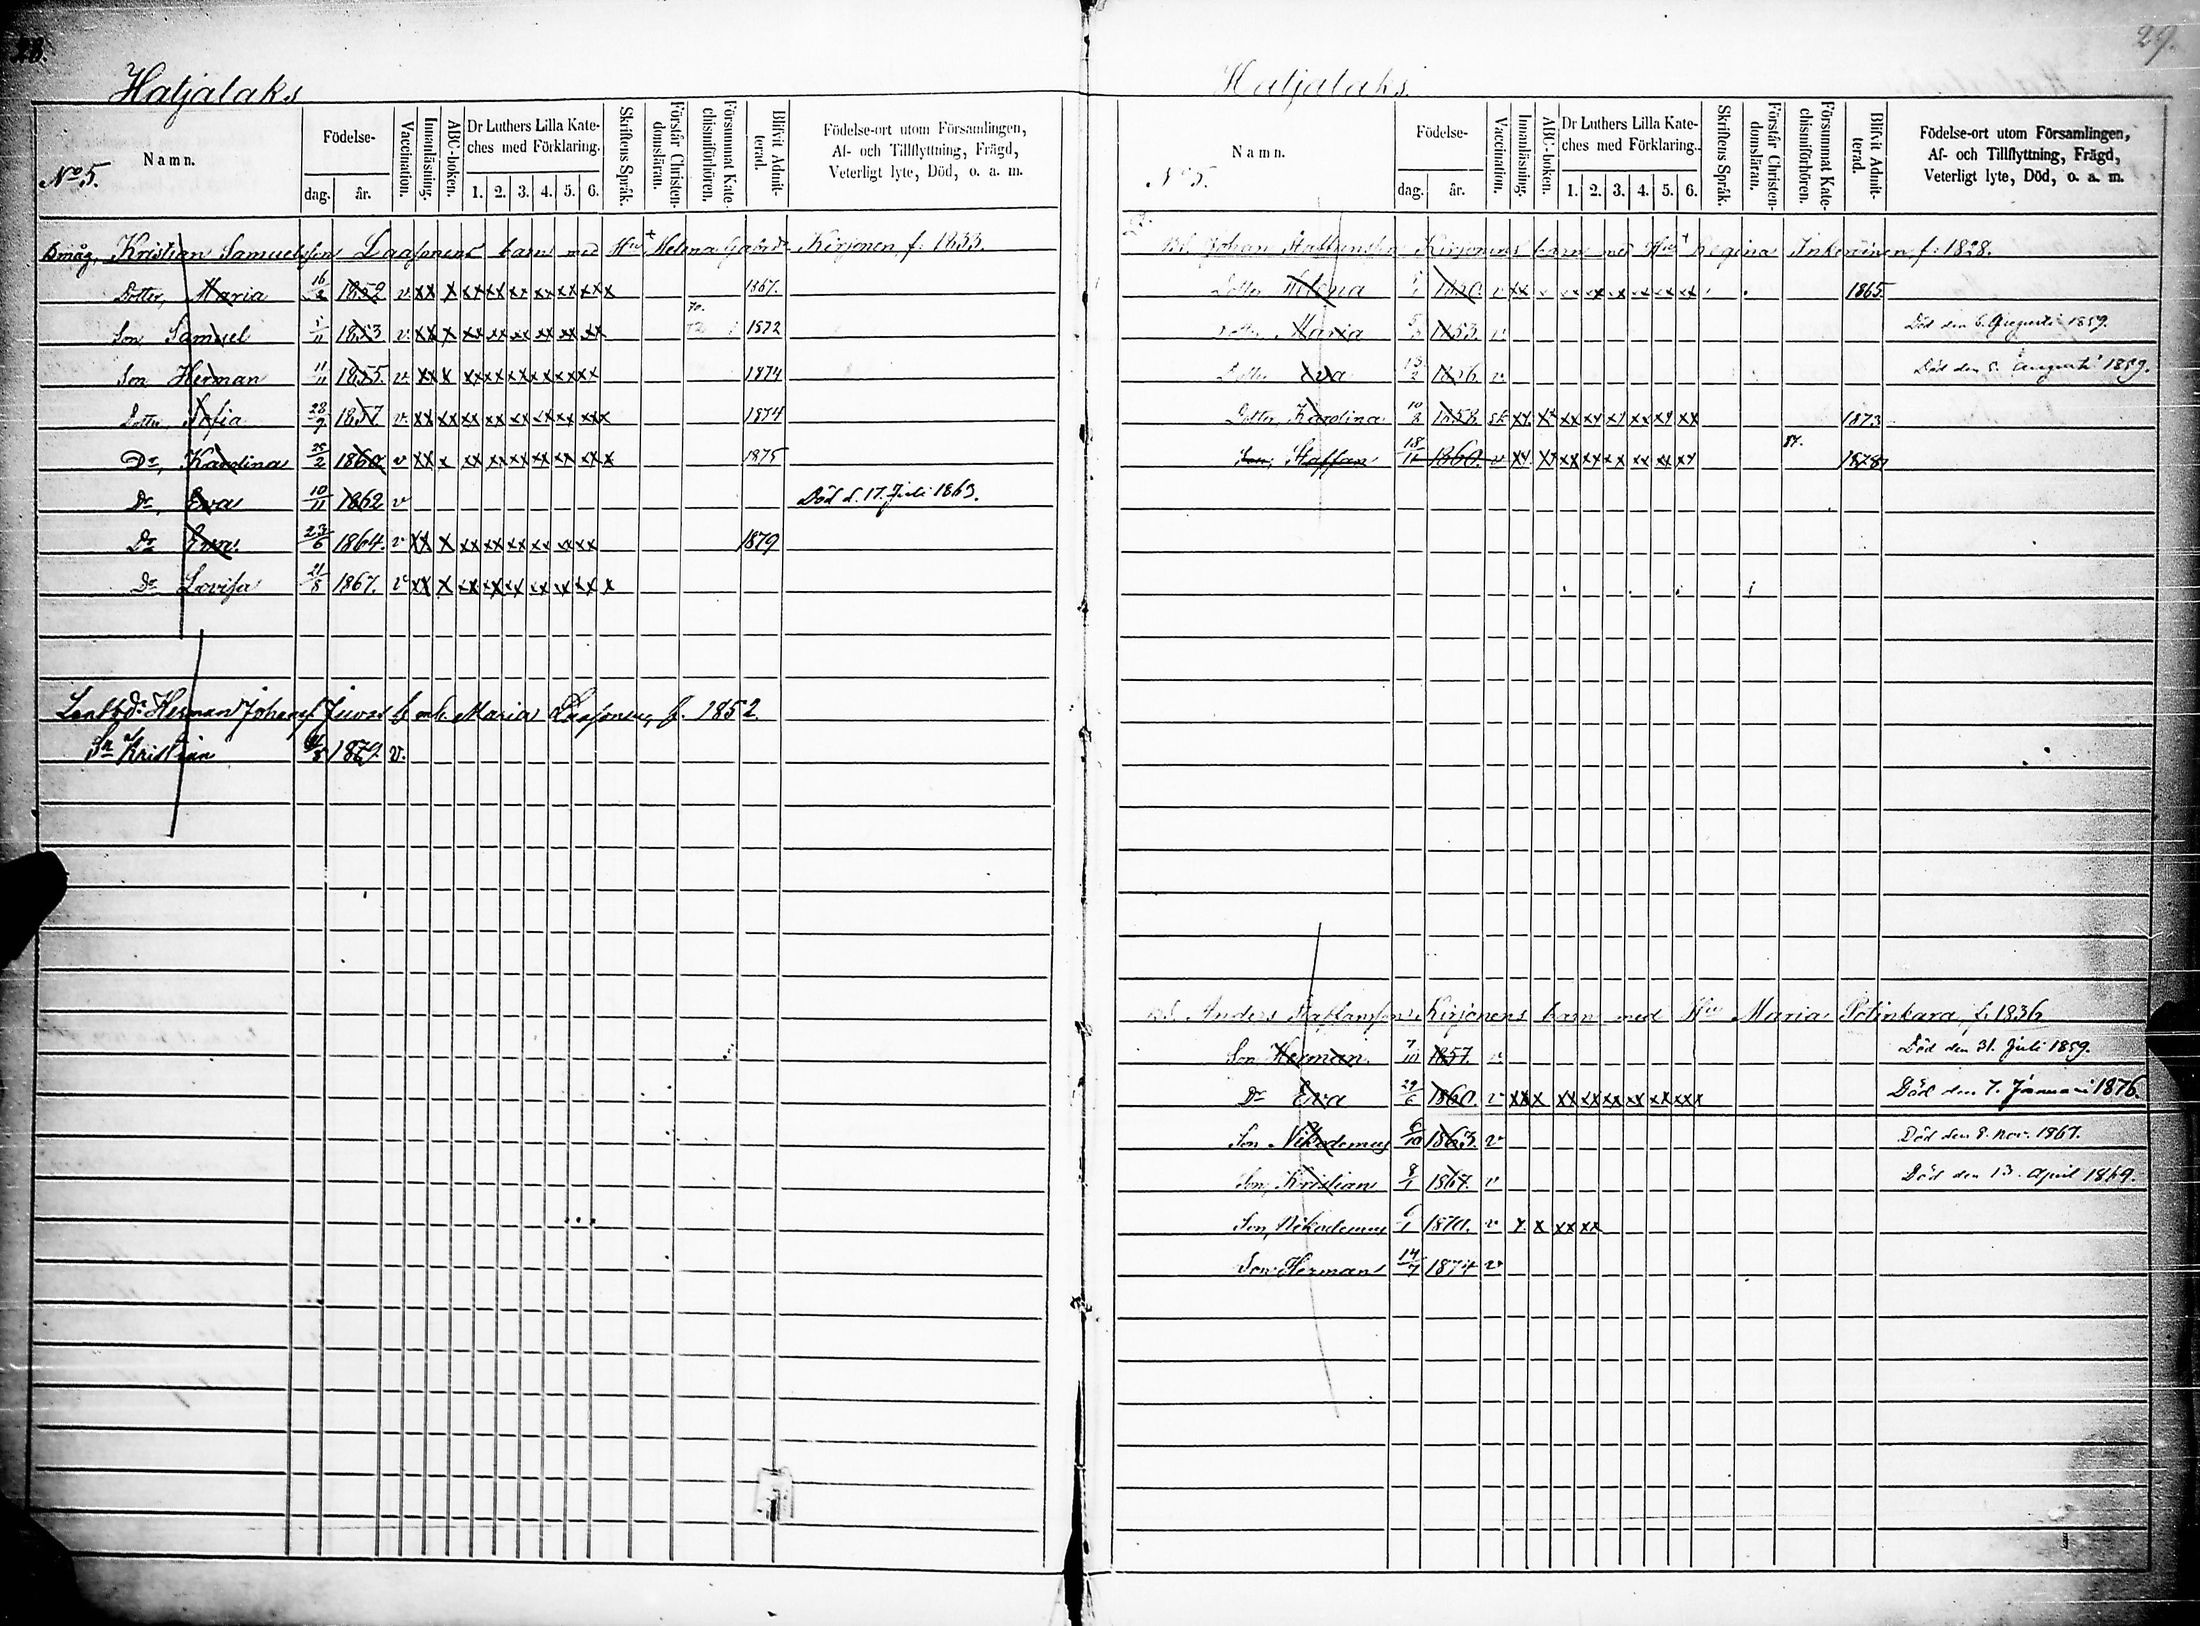 28.
Hatjalaks
No 5.
Namn.
Födelse-
dag.
år.
Vaccination.
Innanläsning.
ABC-boken.
Dr Luthers Lilla Kate-
ches med Förklaring.
1. 2. 3. 4. 5. 6.
Skriftens Språk.
Förstår Christen-
domsläran.
Försummat Kate-
chismiförhören.
Blifvit Admit-
terad.
Födelse-ort utom Församlingen,
Af- och Tillflyttning, Frägd,
Veterligt lyte, Död, o. a. m.
Bmåg, Kristian Samuelsson Laasonens barn med Hu + Helena Kirjonen f. 1833.
Dotter, Maria 16/2 1852 v xx x xx xx xx xx xx xx x 1867.
70.
Son Samuel 1853 v xx x xx xx xx xx xx xx 72 1872
Son Herman 11/11 1855. v xx x xx xx xx xx xx xx 1874
Dotter Sofia 28/9 1857 v xx xx xx xx xx xx xx xxx 1874
Dr, Karolina 25/2 1860 v xx x xx xx xx xx xx xx x 1875
Dr, Eva 10/11 1862 v Död d. 17. Juli 1863.
Dr Eva 23/6 1864. v xx x xx xx xx xx xx xx 1879
Dr Lovisa 21/8 1867. v xx x xx xx xx xx xx xx x
Herman Johans. Juvas b. m. Maria Laasonen, f. 1852.
Sn Kristian 1879. v.
29.
Hatjalaks.
No 5.
Namn.
Födelse-
dag.
år.
Vaccination.
Innanläsning.
ABC-boken.
Dr Luthers Lilla Kate-
ches med Förklaring.
1. 2. 3. 4. 5. 6.
Skriftens Språk.
Förstår Christen-
domsläran.
Försummat Kate-
chismiförhören.
Blifvit Admit-
terad.
Födelse-ort utom Församlingen,
Af- och Tillflyttning, Frägd,
Veterligt lyte, Död, o. a. m.
Johan Staffansson Kirjonens barn med Hu + Regina Inkeroinen, f. 1828.
Dotter Helena 1850. v xx xx xx xx xx xx xx 1865
Dotter Maria 1853. v. Död den 6. Augusti 1859.
Dotter Eva 1856. v. Död den 5. Augusti 1859.
Dotter Karolina 10/8 1858. sk xx. xx xx xx xx xx xx xx 1873
Son, Staffan 18/11 1860. v xx xx xx xx xx xx xx xx 1878
Anders Staffansson Kirjonens barn med Hu Maria Potinkara, f. 1836
Son Herman. 7/10 1857. v. Död den 31. Juli 1859.
Dr Eva 29/6 1860. v xx x xx xx xx xx xx xxx Död den 7. Januari 1876.
Son Nikodemus 1863. v Död den 8. Nov. 1867.
Son, Kristian 8/1 1867. v Död den 13. April 1869.
Son, Nikodemus 1870. v x x xx xx
Son Herman 14/7 1874 v